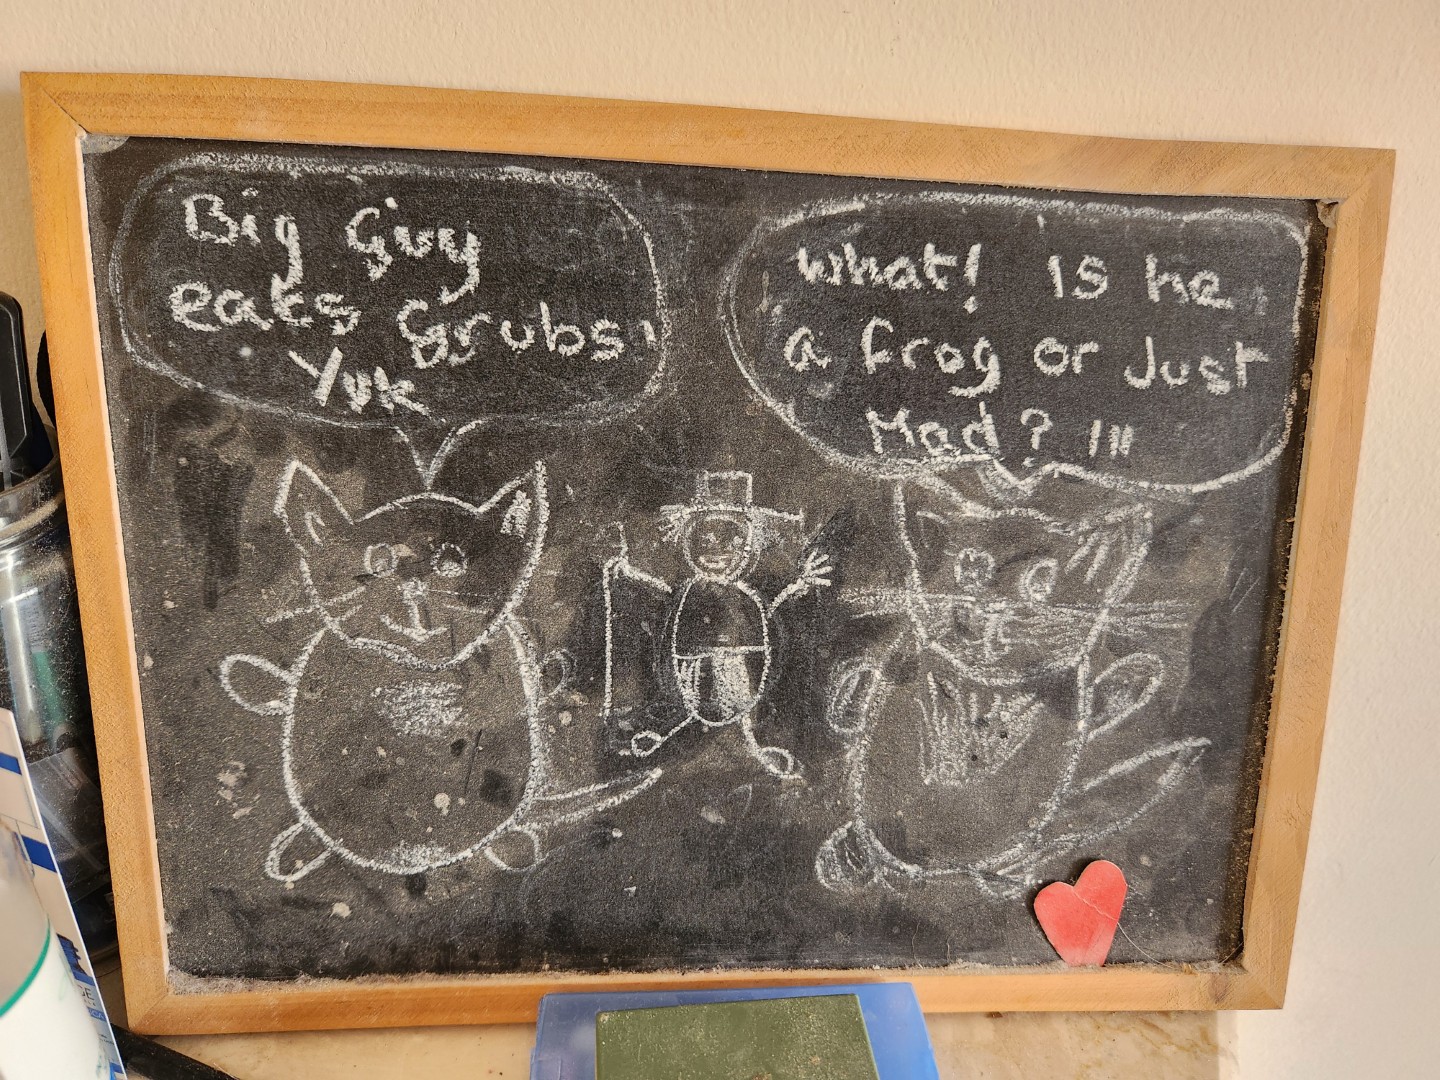 Big Guy
eats Grubs!
Yuk
What! Is he
a frog or Just
Mad? !!!